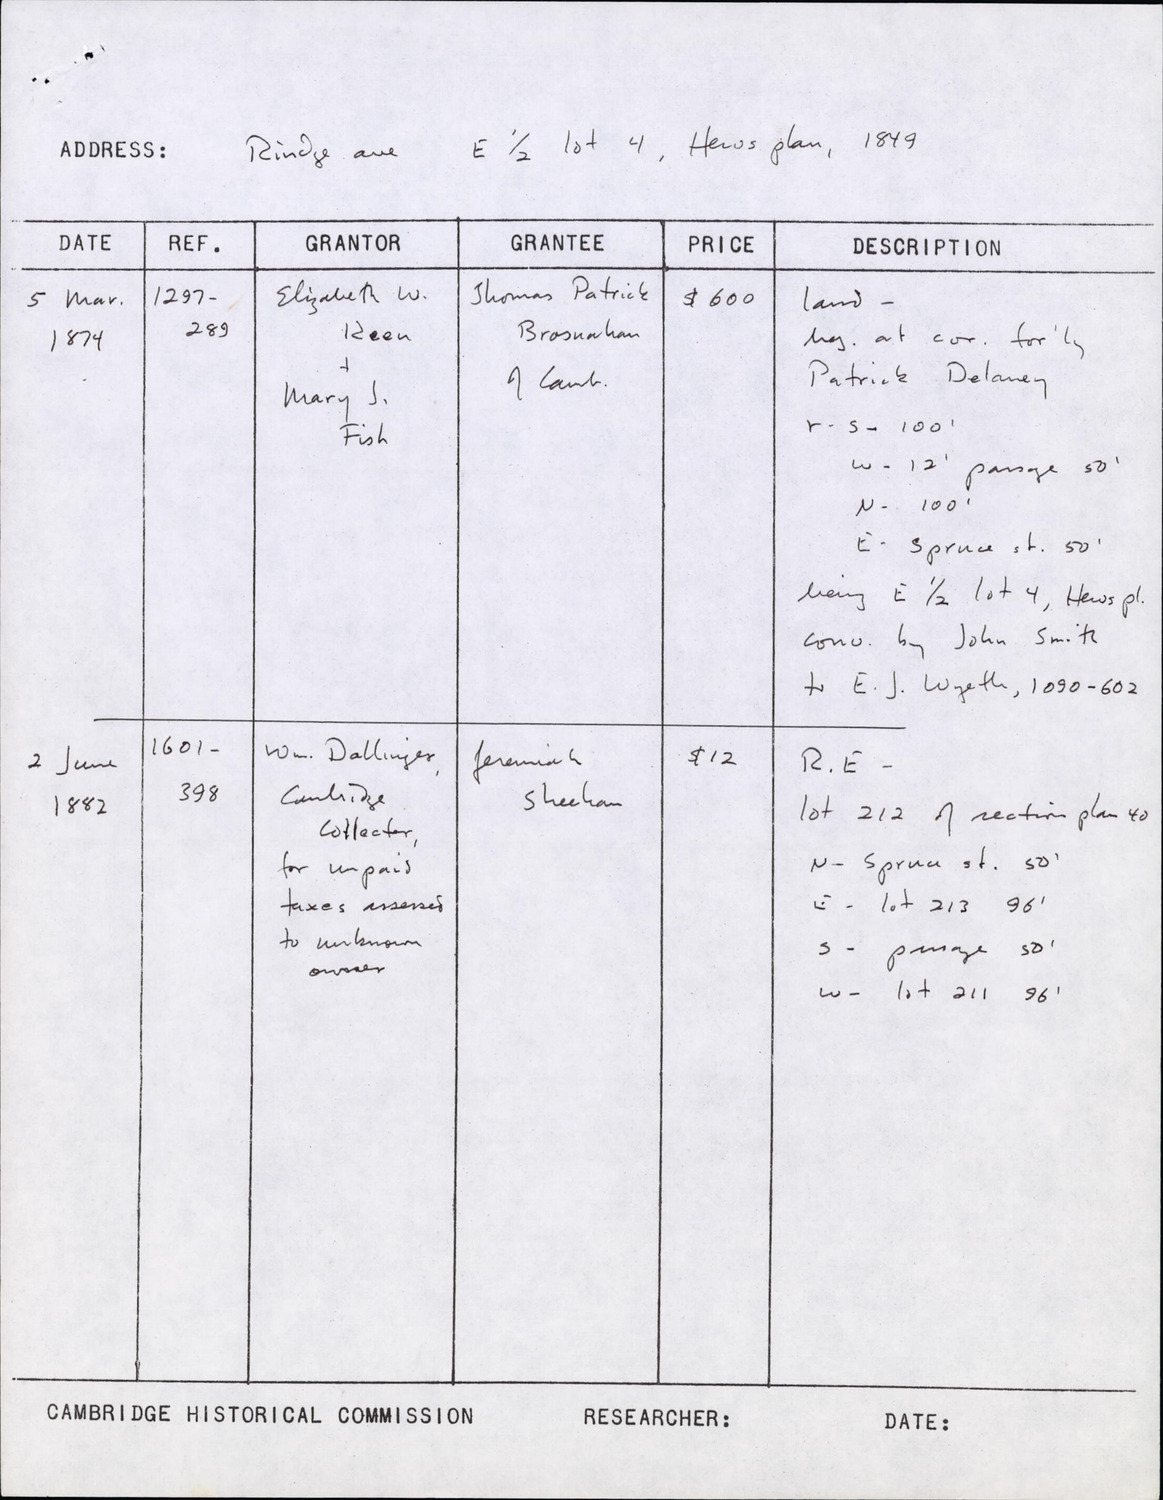 ADDRESS: Rindge ave E 1/2 lot 4, Hews plan, 1849
DATE REF. GRANTOR GRANTEE PRICE DESCRIPTION
5 Mar. 1874
1297-289
Elizabeth W.
Keen
+
Mary J.
Fish
Thomas Patrick
Brosnahan
of Camb.
$600
land -
beg. at cor. for'ly
Patrick Delaney
r - S - 100'
W - 12' passage 50'
N - 100'
E - Spruce st. 50'
being E 1/2 lot 4, Hews pl.
conv. by John Smith
to E. J. Wyeth, 1090-602
2 June
1882
1601-
398
Wm. Dallinger,
Cambridge
Collector,
for unpaid
taxes assessed
to unknown
owner
Jeremiah
Sheehan
$12
R.E -
lot 212 of section plan 40
N - Spruce st. 50'
E - lot 213 96'
S - passage 50'
W - lot 211 96'
CAMBRIDGE HISTORICAL COMMISSION RESEARCHER: DATE: